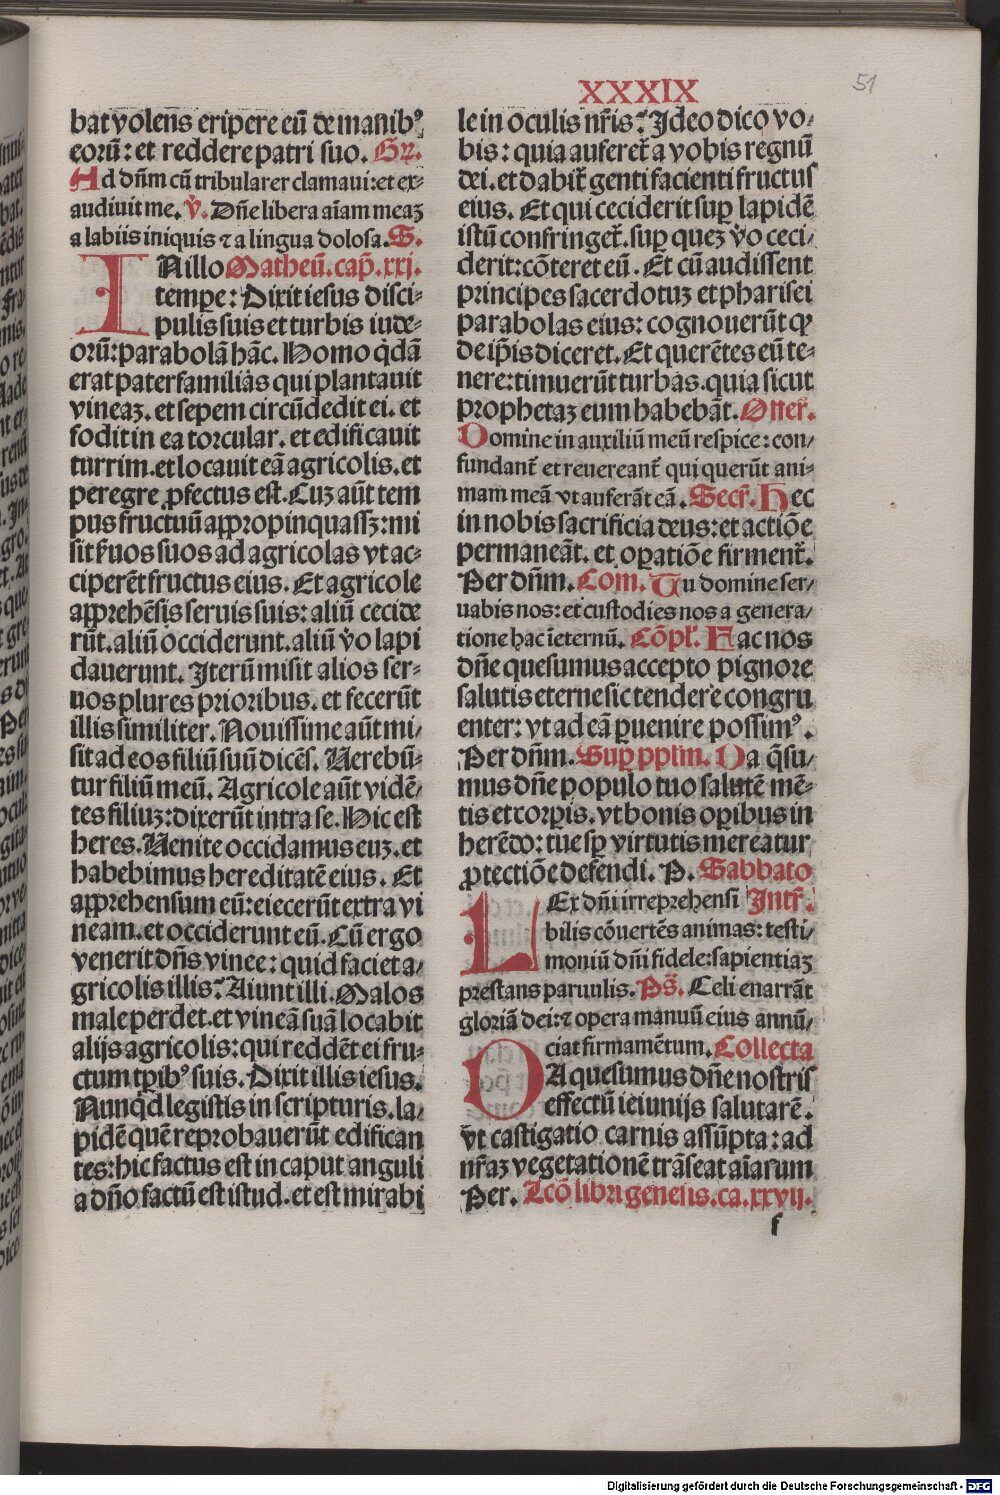 XXXIX
51
bat volens eripere eū de manibꝰ
eorū: et reddere patri suo. Gr̄.
Ad dn̄m cū tribularer clamaui: et ex-
audiuit me. V̄. Dn̄e libera aīam meaꝫ
a labiis iniquis ⁊ a lingua dolosa. S.
IN illo Matheū. cap̄. xxj.
tempe: Dixit iesus disci-
pulis suis et turbis iude-
orū: parabolā hāc. Homo q̇dā
erat paterfamilias qui plantauit
vineaꝫ. et sepem circūdedit ei. et
fodit in ea torcular. et edificauit
turrim. et locauit eā agricolis. et
peregre ꝓfectus est. Cuꝫ aūt tem
pus fructuū appropinquassꝫ: mi
sit ẜuos suos ad agricolas vt ac-
ciperēt fructus eius. Et agricole
apprehēsis seruis suis: aliū cecide
rūt. aliū occiderunt. aliū v̇o lapi
dauerunt. Iterū misit alios ser-
uos plures prioribus. et fecerūt
illis similiter. Nouissime aūt mi-
sit ad eos filiū suū dicēs. Verebū-
tur filiū meū. Agricole aūt vidē-
tes filiuꝫ: dixerūt intra se. Hic est
heres. Venite occidamus euꝫ. et
habebimus hereditatē eius. Et
apprehensum eū: eiecerūt extra vi
neam. et occiderunt eū. Cū ergo
venerit dn̄s vinee: quid faciet a-
gricolis illis? Aiunt illi. Malos
male perdet. et vineā suā locabit
alijs agricolis: qui reddēt ei fru-
ctum tꝑibꝰ suis. Dixit illis iesus.
Nunq̇d legistis in scripturis. la-
pidē quē reprobauerūt edifican
tes: hic factus est in caput anguli
a dn̄o factū est istud. et est mirabi
le in oculis nr̄is? Ideo dico vo-
bis: quia auferet᷑ a vobis regnū
dei. et dabit᷑ genti facienti fructus
eius. Et qui ceciderit suꝑ lapidē
istū confringet᷑. suꝑ queꝫ v̇o ceci-
derit: cōteret eū. Et cū audissent
principes sacerdotuꝫ et pharisei
parabolas eius: cognouerūt ꝙ
de ip̄is diceret. Et querētes eū te-
nere: timuerūt turbas. quia sicut
prophetaꝫ eum habebāt. Offer̄.
Domine in auxiliū meū respice: con-
fundant᷑ et reuereant᷑ qui querūt ani-
mam meā vt auferāt eā. Secr̄. Hec
in nobis sacrificia deus: et actiōe
permaneāt. et oꝑatiōe firment᷑.
Per dn̄m. Com. Tu domine ser-
uabis nos: et custodies nos a genera-
tione hac ī eternū. Cōpl̄. Fac nos
dn̄e quesumus accepto pignore
salutis eterne sic tendere congru
enter: vt ad eā ꝑuenire possimꝰ.
Per dn̄m. Suꝑ ppl̄m. Da q̄su-
mus dn̄e populo tuo salutē mē-
tis et corꝑis. vt bonis oꝑibus in
herēdo: tue sꝑ virtutis mereatur
ꝓtectiōe defendi. P. Sabbato
LEx dn̄i irreprehensi Intr̄.
bilis cōuertēs animas: testi-
moniū dn̄i fidele: sapientiaꝫ
prestans paruulis. Ps̄. Celi enarrāt
gloriā dei: ⁊ opera manuū eius annū-
ciat firmamētum. Collecta
DA quesumus dn̄e nostris
effectū ieiunijs salutarē.
vt castigatio carnis assūpta: ad
nr̄aꝫ vegetationē trāseat aīarum
Per. Lcō libri genesis. ca. xxvij.
f
Digitalisierung gefördert durch die Deutsche Forschungsgemeinschaft - DFG